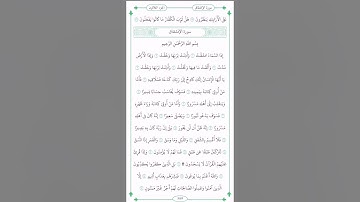 عَلَى ٱلْأَرَآئِكِ يَنظُرُونَ ۝ هَلْ ثُوِّبَ ٱلْكُفَّارُ مَا كَانُوا۟ يَفْعَلُونَ ۝
سورة الإنشقاق
بِسْمِ اللَّهِ الرَّحْمَٰنِ الرَّحِيمِ
إِذَا ٱلسَّمَآءُ ٱنشَقَّتْ ۝ وَأَذِنَتْ لِرَبِّهَا وَحُقَّتْ ۝ وَإِذَا ٱلْأَرْضُ
مُدَّتْ ۝ وَأَلْقَتْ مَا فِيهَا وَتَخَلَّتْ ۝ وَأَذِنَتْ لِرَبِّهَا وَحُقَّتْ ۝
يَٰٓأَيُّهَا ٱلْإِنسَٰنُ إِنَّكَ كَادِحٌ إِلَىٰ رَبِّكَ كَدْحًا فَمُلَٰقِيهِ ۝ فَأَمَّا
مَنْ أُوتِىَ كِتَٰبَهُۥ بِيَمِينِهِۦ ۝ فَسَوْفَ يُحَاسَبُ حِسَابًا يَسِيرًا ۝
وَيَنقَلِبُ إِلَىٰٓ أَهْلِهِۦ مَسْرُورًا ۝ وَأَمَّا مَنْ أُوتِىَ كِتَٰبَهُۥ وَرَآءَ ظَهْرِهِۦ ۝
فَسَوْفَ يَدْعُوا۟ ثُبُورًا ۝ وَيَصْلَىٰ سَعِيرًا ۝ إِنَّهُۥ كَانَ فِىٓ أَهْلِهِۦ
مَسْرُورًا ۝ إِنَّهُۥ ظَنَّ أَن لَّن يَحُورَ ۝ بَلَىٰٓ إِنَّ رَبَّهُۥ كَانَ بِهِۦ بَصِيرًا ۝
فَلَآ أُقْسِمُ بِٱلشَّفَقِ ۝ وَٱلَّيْلِ وَمَا وَسَقَ ۝ وَٱلْقَمَرِ إِذَا ٱتَّسَقَ ۝
لَتَرْكَبُنَّ طَبَقًا عَن طَبَقٍ ۝ فَمَا لَهُمْ لَا يُؤْمِنُونَ ۝ وَإِذَا قُرِئَ
عَلَيْهِمُ ٱلْقُرْءَانُ لَا يَسْجُدُونَ ۩ ۝ بَلِ ٱلَّذِينَ كَفَرُوا۟ يُكَذِّبُونَ ۝
وَٱللَّهُ أَعْلَمُ بِمَا يُوعُونَ ۝ فَبَشِّرْهُم بِعَذَابٍ أَلِيمٍ ۝ إِلَّا
ٱلَّذِينَ ءَامَنُوا۟ وَعَمِلُوا۟ ٱلصَّٰلِحَٰتِ لَهُمْ أَجْرٌ غَيْرُ مَمْنُونٍ ۝